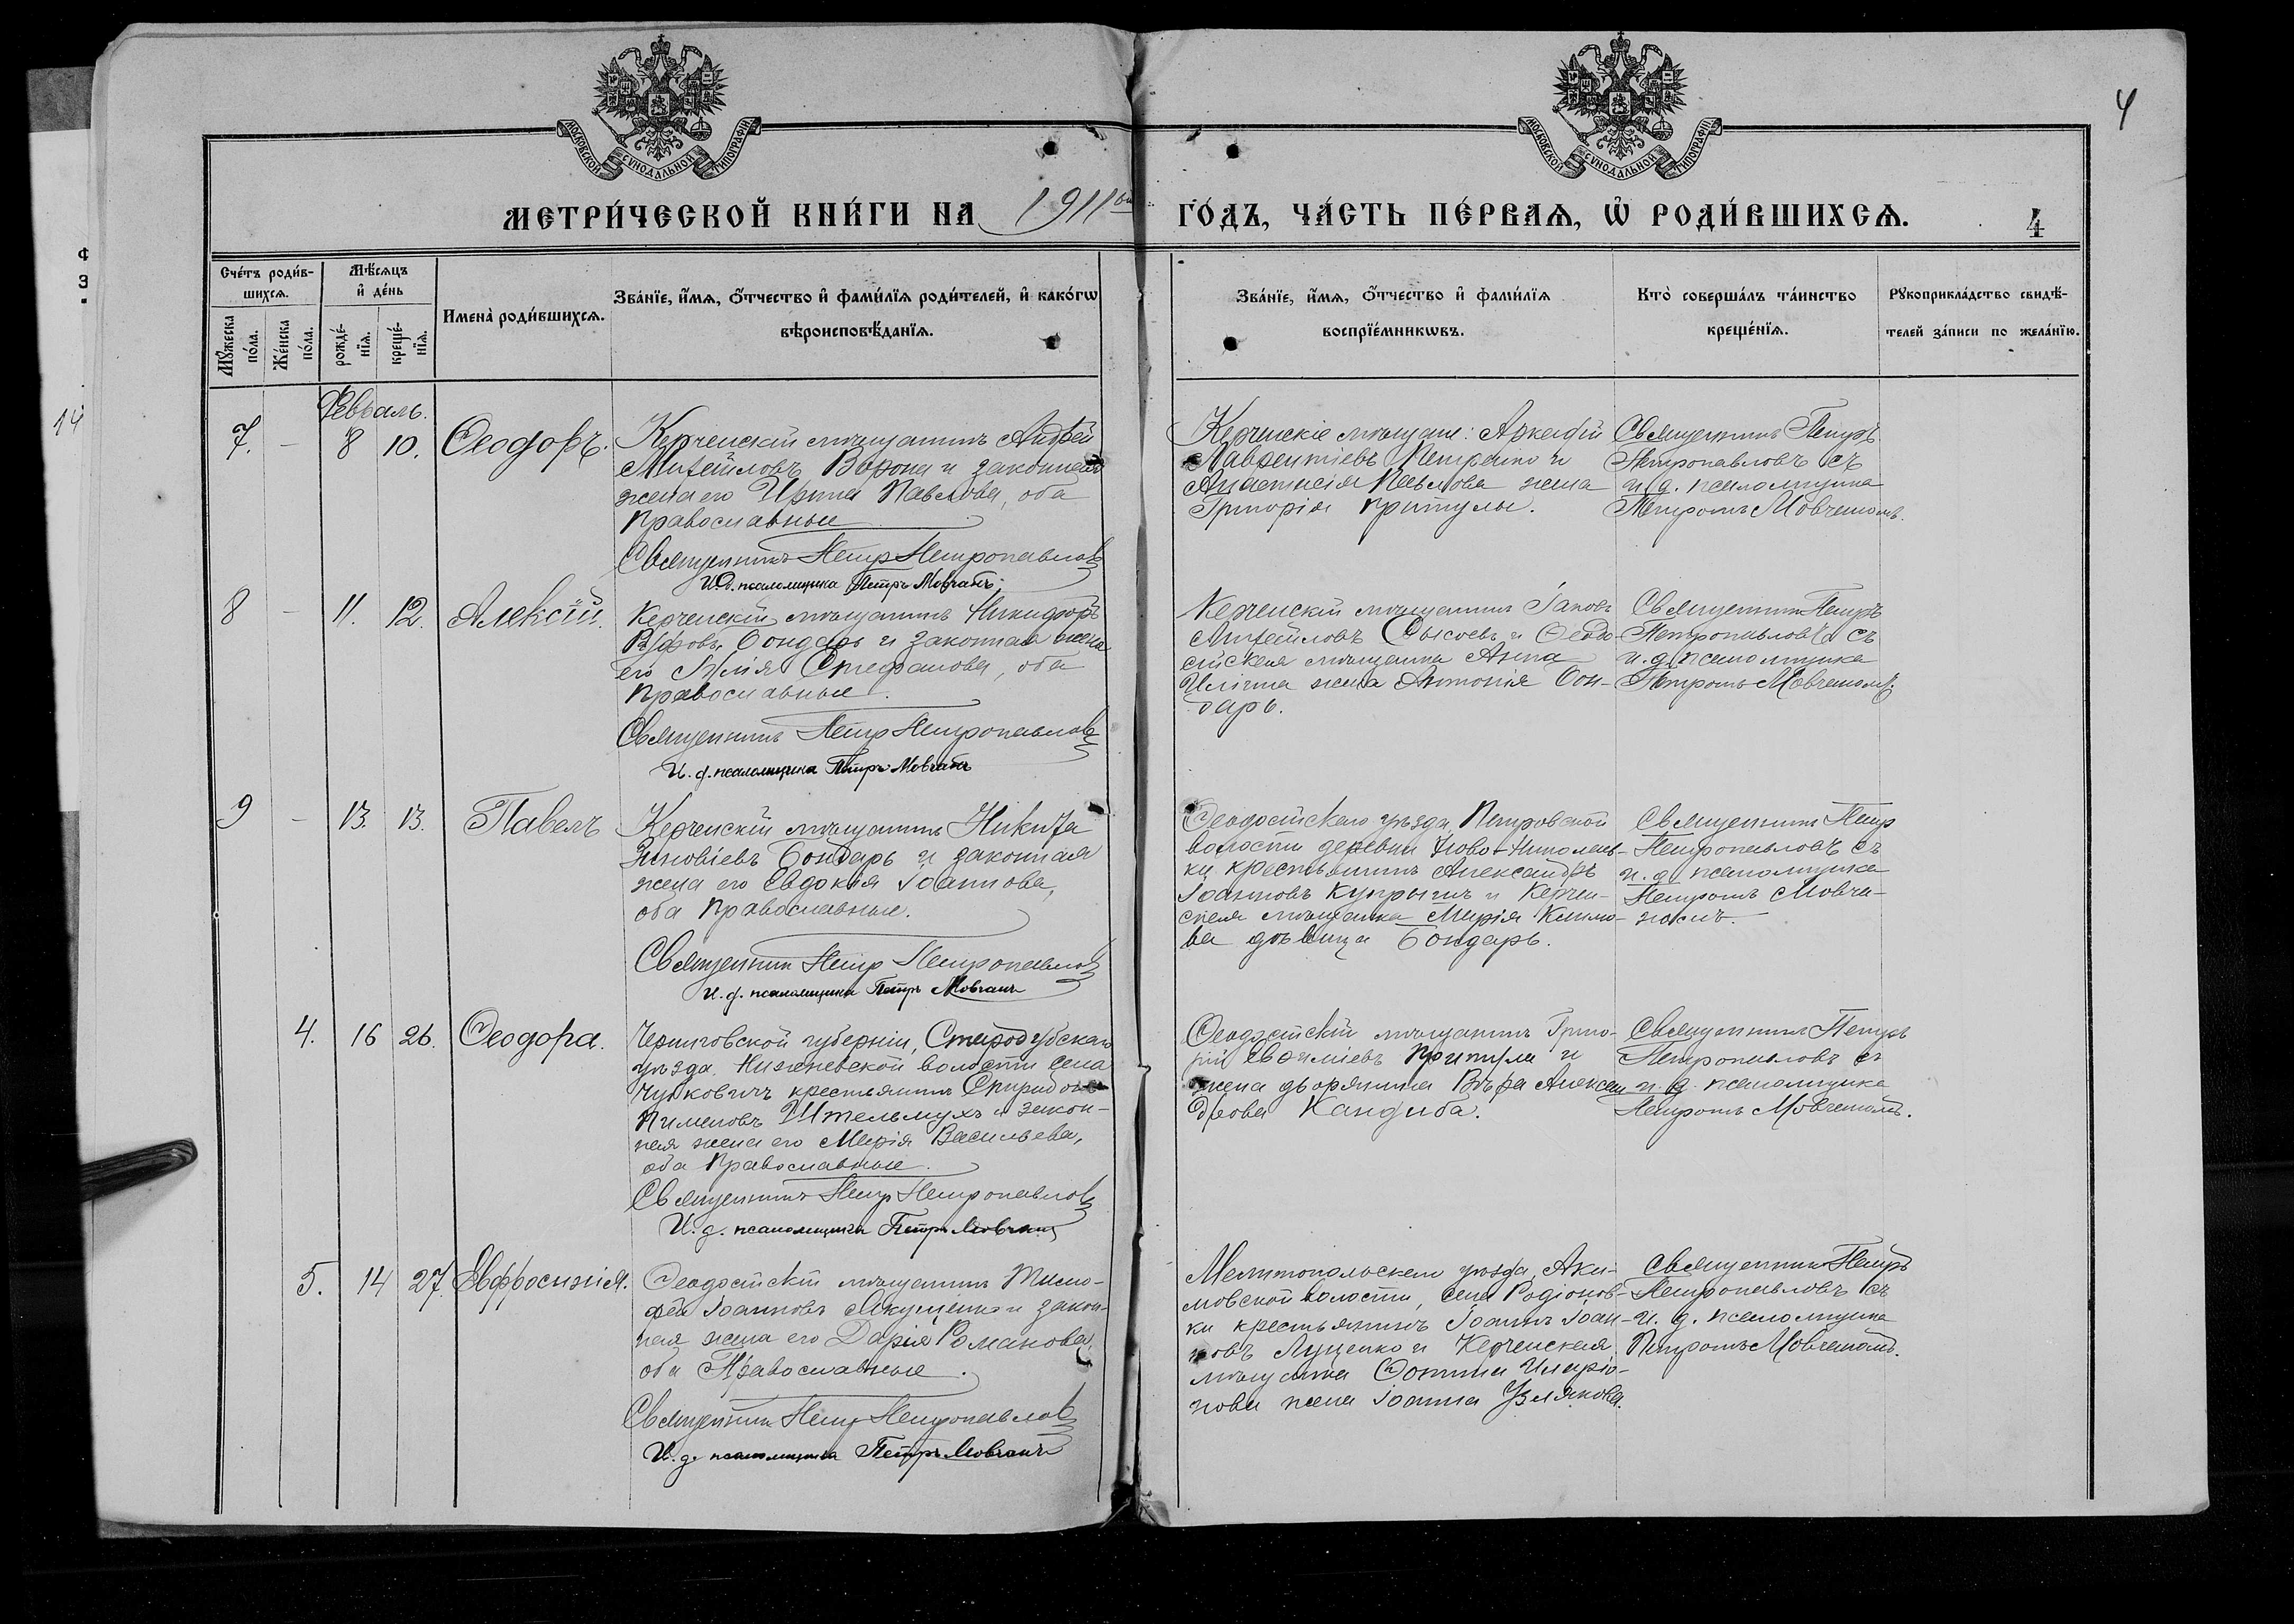 4
МОСКОВСКОЙ СУНОДАЛЬНОЙ ТИПОГРАФІИ
МОСКОВСКОЙ СУНОДАЛЬНОЙ ТИПОГРАФІИ
МЕТРИ́ЧЕСКОЙ КНИ́ГИ НА 1911ый ГО́ДЪ, ЧА́СТЬ ПЕ́РВАѦ, Ѿ РОДИ́ВШИХСѦ.
4
Сче́тъ роди́в-
шихсѧ.
Мꙋ́жеска
по́ла.
Же́нска
по́ла.
Мѣ́сѧцъ
и҆ де́нь
рожде́-
нїѧ.
креще́-
нїѧ.
Имена̀ роди́вшихсѧ.
Зва́нїе, и҆́мѧ, ѻ҆́тчество и҆ фами́лїѧ роди́телей, и҆ како́гѡ
вѣроисповѣ́данїѧ.
Зва́нїе, и҆́мѧ, ѻ҆́тчество и҆ фами́лїѧ
воспрїе́мникѡвъ.
Кто̀ соверша́лъ та́инство
креще́нїѧ.
Рꙋкоприкла́дство свидѣ́-
телей за́писи по жела́нїю.
14
Февраль.
7. - 8 10. Ѳеодоръ.
Керченскій мѣщанинъ Андрей
Михайловъ Ворона и законная
жена его Ирина Павлова, оба
православные
Священникъ Петр Петропавлов
И.д. псаломщика Петръ Мовчанъ
Керченскіе мѣщане: Аркадій
Лаврентіевъ Петренко и
Анастасія Павлова жена
Григорія Притулы.
Священникъ Петръ
Петропавловъ съ
и д. псаломщика
Петромъ Мовчаномъ.
8 - 11. 12. Алексій.
Керченскій мѣщанинъ Никифоръ
Бондарь и законная жена
его Юлія Стефанова, оба
православные.
Священникъ Петр Петропавлов
И. д. псаломщика Петръ Мовчанъ
Керченскій мѣщанинъ Іаковъ
Михайловъ Сысоевъ и Ѳеодо-
сійская мѣщанка Анна
Иліина жена Антонія Бон-
дарь.
Священникъ Петръ
Петропавловъ съ
и. д. псаломщика
Петромъ Мовчаномъ.
9 - 13. 13. Павелъ
Керченскій мѣщанинъ Никита
Зиновіевъ Бондарь и законная
жена его Евдокія Іоаннова,
оба православные.
Священник Петр Петропавлов
И. д. псаломщика Петръ Мовчанъ
Ѳеодосійскаго уѣзда, Петровской
волости деревни Ново-Николаев-
ки крестьянинъ Александръ
Іоанновъ Купрынъ и Керчен-
ская мѣщанка Марія Климо-
ва дѣвица Бондарь.
Священникъ Петр
Петропавловъ съ
и. д. псаломщика
Петромъ Мовча-
номъ.
4. 16 26. Ѳеодора.
Черниговской губерніи, Стародубскаго
уѣзда волости села
Чубковичъ крестьянинъ Спиридонъ
Пименовъ и закон-
ная жена его Марія Васильева,
оба православные.
Священникъ Петр Петропавлов
И. д. псаломщика Петръ Мовчанъ
Ѳеодосійскій мѣщанинъ Григо-
рій Евѳиміевъ Притула и
жена дворянина Вѣра Алексан
дрова Кандыба.
Священникъ Петръ
Петропавловъ съ
и. д. псаломщика
Петромъ Мовчаномъ.
5. 14 27. Евфросинія.
Ѳеодосійскій мѣщанинъ Тимо-
фей Іоанновъ Якущенко и закон-
ная жена его Дарія Романова,
оба Православные.
Священник Петр Петропавлов
И. д. псаломщика Петръ Мовчанъ
Мелитопольскаго уѣзда, Аки-
мовской волости, села Родіонов-
ки крестьянинъ Іоаннъ Іоан-
новъ Луценко и Керченская
мѣщанка Фотина Иларіо-
нова жена Іоанна
Священник Петръ
Петропавловъ съ
и. д. псаломщика
Петромъ Мовчаномъ.